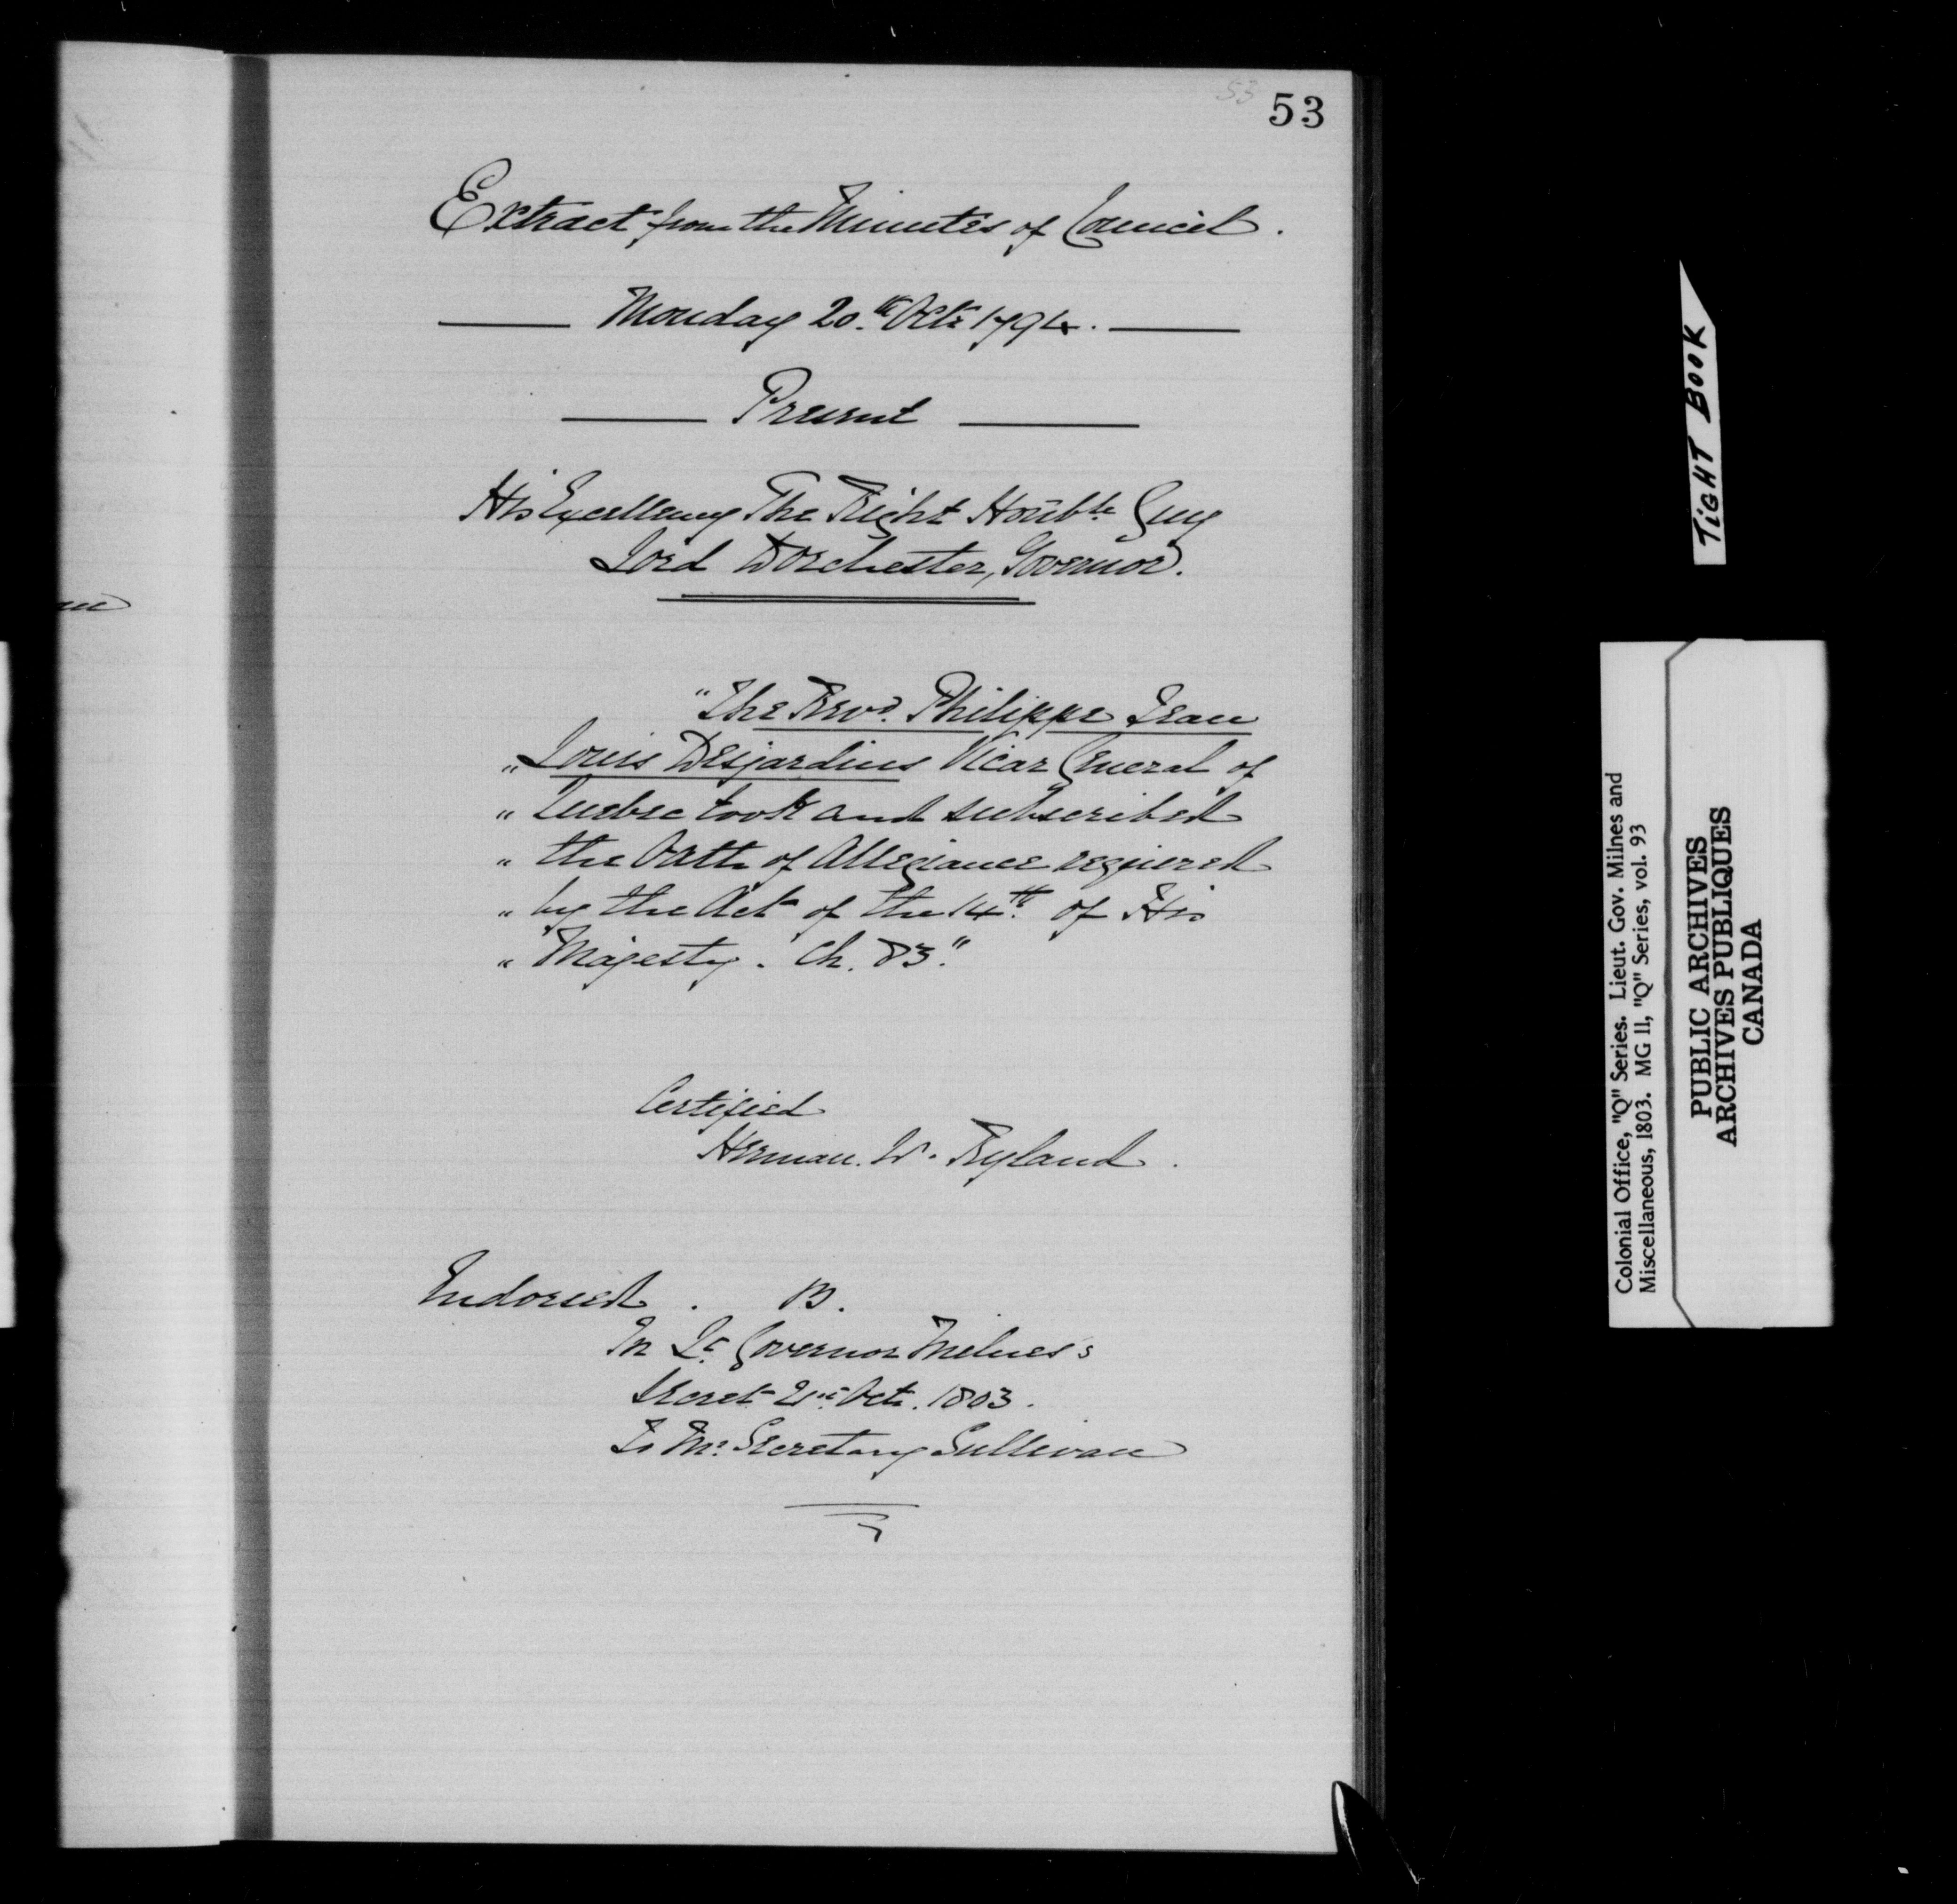 53
53
Extract from the Minutes of Council.
Monday 20.th Octr 1794.
Present
His Excellency The Right Honble Guy
Lord Dorchester, Governor.
"The Revd. Philippe Jean
" Louis Desjardins Vicar General of
" Quebec took and subscribed
" the Oath of Allegiance required
" by the Act of the 14th. of His
" Majesty. Ch. 83."
Certified
Herman. W. Ryland.
Endorsed. B.
In Lt. Governor Milnes's
Secret 21st. Oct. 1803.
To Mr. Secretary Sullivan
TIGHT BOOK
Colonial Office, "Q" Series. Lieut. Gov. Milnes and
Miscellaneous, 1803. MG 11, "Q" Series, vol. 93
PUBLIC ARCHIVES
ARCHIVES PUBLIQUES
CANADA